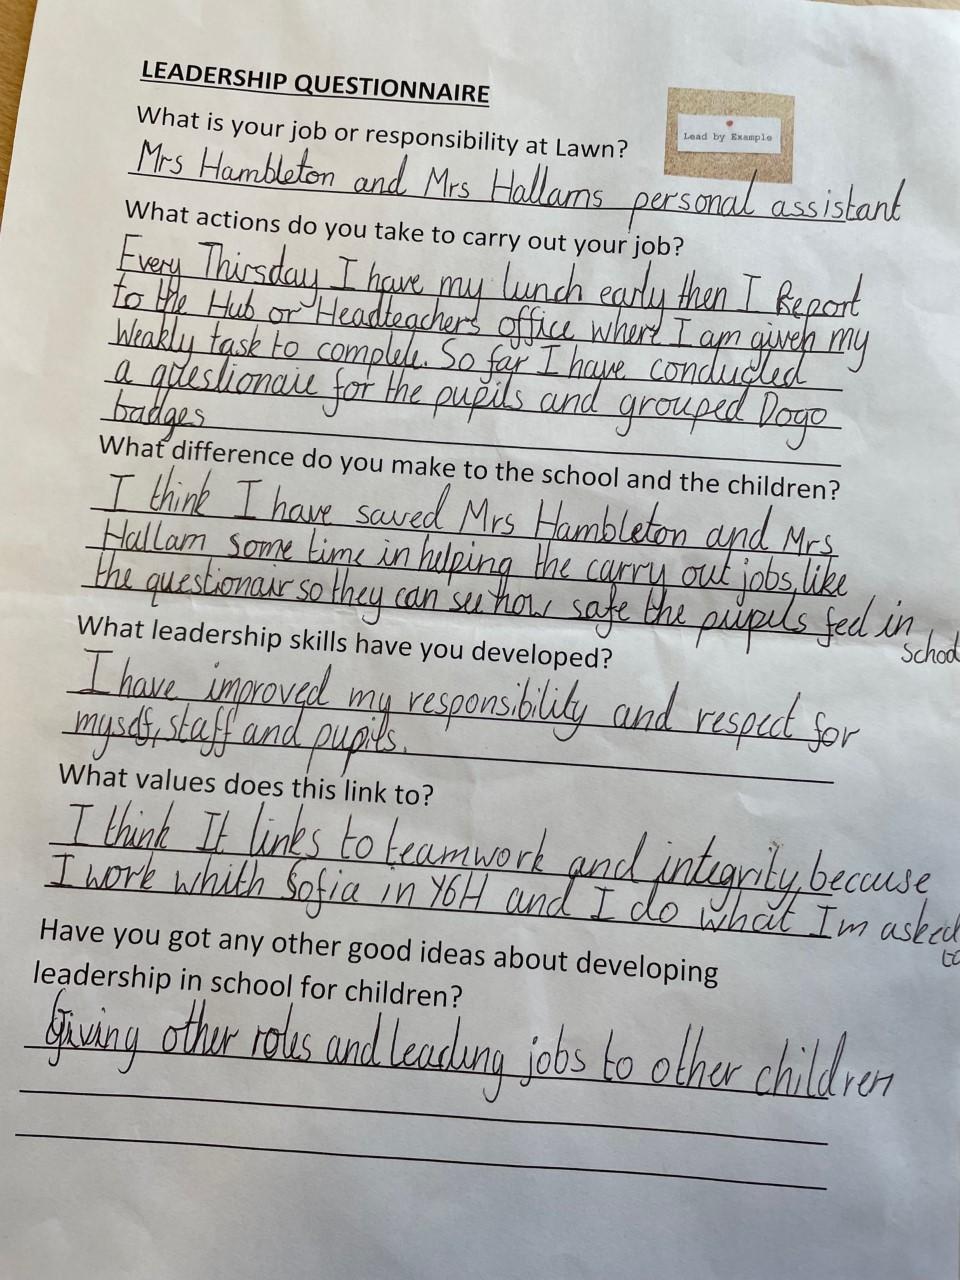 LEADERSHIP QUESTIONNAIRE
Lead by Example
What is your job or responsibility at Lawn?
Mrs Hambleton and Mrs Hallams personal assistant
What actions do you take to carry out your job?
Every Thirsday I have my lunch early then I Report
to the Hub or Headteachers office where I am given my
Weakly task to complete. So far I have conducted
a questionaie for the pupils and grouped Dogo
badges
What difference do you make to the school and the children?
I think I have saved Mrs Hambleton and Mrs
Hallam some time in helping the carry out jobs, like
the questionair so they can see how safe the pupils feel in
school
What leadership skills have you developed?
I have improved my responsibility and respect for
myself, staff and pupils.
What values does this link to?
I think It links to teamwork and integrity, because
I work whith Sofia in Y6H and I do what Im asked
to
Have you got any other good ideas about developing
leadership in school for children?
Giving other roles and leading jobs to other children